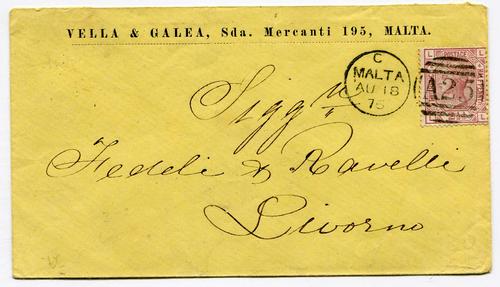 VELLA & GALEA, Sda. Mercanti 195, MALTA.
C
MALTA
AU 18
76
A25
Sigg.ri
Fedeli & Ravelli
Livorno